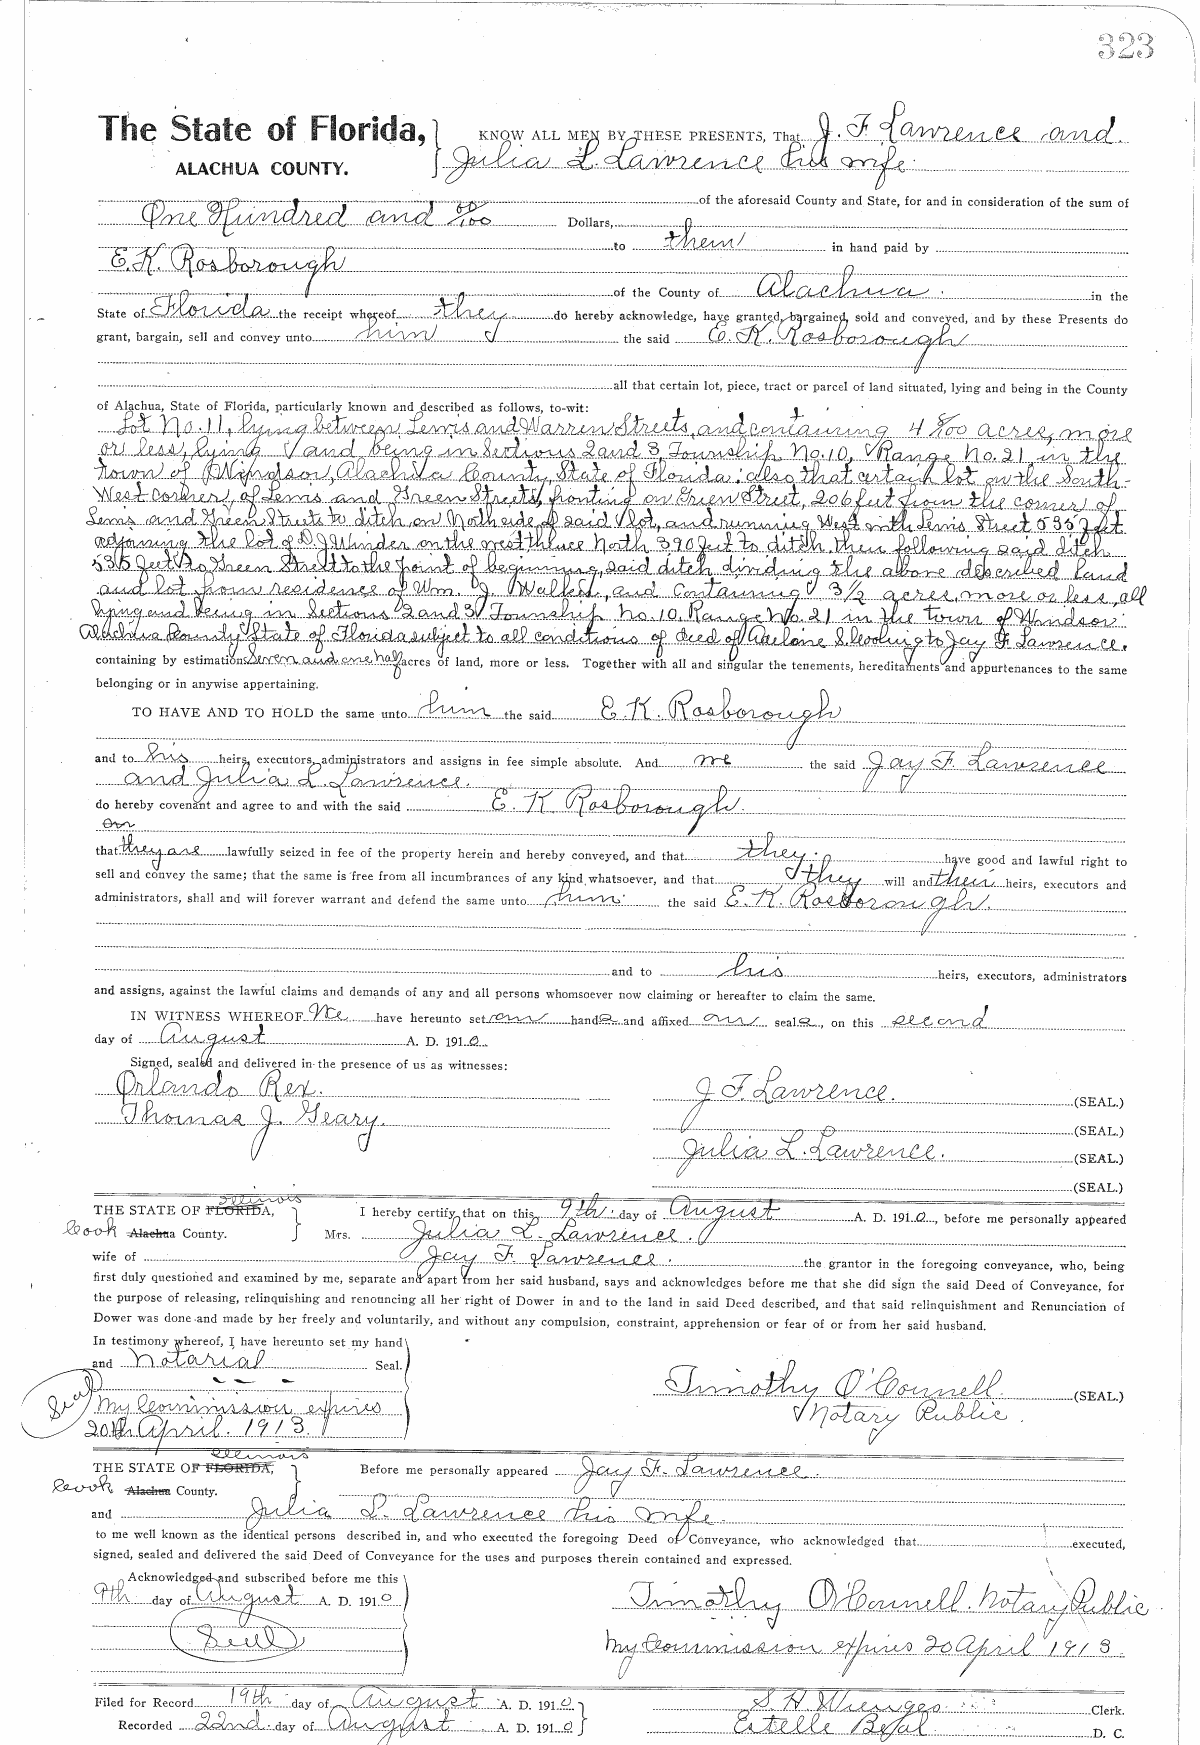 323
The State of Florida, KNOW ALL MEN BY THESE PRESENTS, That J. F. Lawrence and
ALACHUA COUNTY. Julia L. Lawrence his wife
of the aforesaid County and State, for and in consideration of the sum of
One Hundred and 00/100 Dollars,
to them in hand paid by
E. K. Rosborough
of the County of Alachua. in the
State of Florida the receipt whereof they do hereby acknowledge, have granted, bargained, sold and conveyed, and by these Presents do
grant, bargain, sell and convey unto him the said E. K. Rosborough
all that certain lot, piece, tract or parcel of land situated, lying and being in the County
of Alachua, State of Florida, particularly known and described as follows, to-wit:
Lot No. 11, lying between Lewis and Warren Streets, and containing 4 acres, more
or less, lying and being in Sections 2 and 3, Township No. 10, Range No. 21 in the
town of Windsor, Alachua County, State of Florida: also that certain lot on the South-
West corner, of Lewis and Green Streets, fronting on Green Street, 206 feet from the corner of
Lewis and Green Streets to ditch on North side of said lot, and running West with Lewis Street 535 feet
adjoining the lot of D. J. Winder on the west thence North 390 feet to ditch, then following said ditch
535 feet to Green Street to the point of beginning, said ditch dividing the above described land
and lot from residence of Wm. J. and containing 3 1/2 acres, more or less, all
lying and being in Sections 2 and 3 Township No. 10, Range No. 21 in the town of Windsor
Alachua County State of Florida subject to all conditions of deed of Adelaine S. to Jay F. Lawrence.
containing by estimation Seven and one half acres of land, more or less. Together with all and singular the tenements, hereditaments and appurtenances to the same
belonging or in anywise appertaining.
TO HAVE AND TO HOLD the same unto him the said E. K. Rosborough
and to his heirs, executors, administrators and assigns in fee simple absolute. And we the said Jay F. Lawrence
and Julia L. Lawrence.
do hereby covenant and agree to and with the said E. K Rosborough.
that they are lawfully seized in fee of the property herein and hereby conveyed, and that they. have good and lawful right to
sell and convey the same; that the same is free from all incumbrances of any kind whatsoever, and that they will and their heirs, executors and
administrators, shall and will forever warrant and defend the same unto him the said E. K. Rosborough.
and to his heirs, executors, administrators
and assigns, against the lawful claims and demands of any and all persons whomsoever now claiming or hereafter to claim the same.
IN WITNESS WHEREOF We have hereunto set our hands and affixed our seals, on this second
day of August A. D. 1910.
Signed, sealed and delivered in the presence of us as witnesses:
Orlando Rex.
Thomas J. Geary.
J F. Lawrence. (SEAL.)
(SEAL.)
Julia L. Lawrence. (SEAL.)
(SEAL.)
Illinois
THE STATE OF FLORIDA, I hereby certify that on this 9th. day of August A. D. 1910, before me personally appeared
Cook Alachua County. Mrs. Julia L. Lawrence.
wife of Jay F. Lawrence. the grantor in the foregoing conveyance, who, being
first duly questioned and examined by me, separate and apart from her said husband, says and acknowledges before me that she did sign the said Deed of Conveyance, for
the purpose of releasing, relinquishing and renouncing all her right of Dower in and to the land in said Deed described, and that said relinquishment and Renunciation of
Dower was done and made by her freely and voluntarily, and without any compulsion, constraint, apprehension or fear of or from her said husband.
In testimony whereof, I have hereunto set my hand
and Notarial Seal.
Timothy O'Connell. (SEAL.)
Notary Public.
Seal My Commission expires
20th April. 1913.
Illinois
THE STATE OF FLORIDA, Before me personally appeared Jay F. Lawrence.
Cook Alachua County.
and Julia L. Lawrence his wife
to me well known as the identical persons described in, and who executed the foregoing Deed of Conveyance, who acknowledged that executed,
signed, sealed and delivered the said Deed of Conveyance for the uses and purposes therein contained and expressed.
Acknowledged and subscribed before me this
9th day of August A. D. 1910
Seal
Timothy O'Connell. Notary Public
My Commission expires 20 April 1913.
Filed for Record 19th day of August A. D. 1910 S. H. Wienges Clerk.
Recorded 22nd day of August A. D. 1910 Estelle D. C.